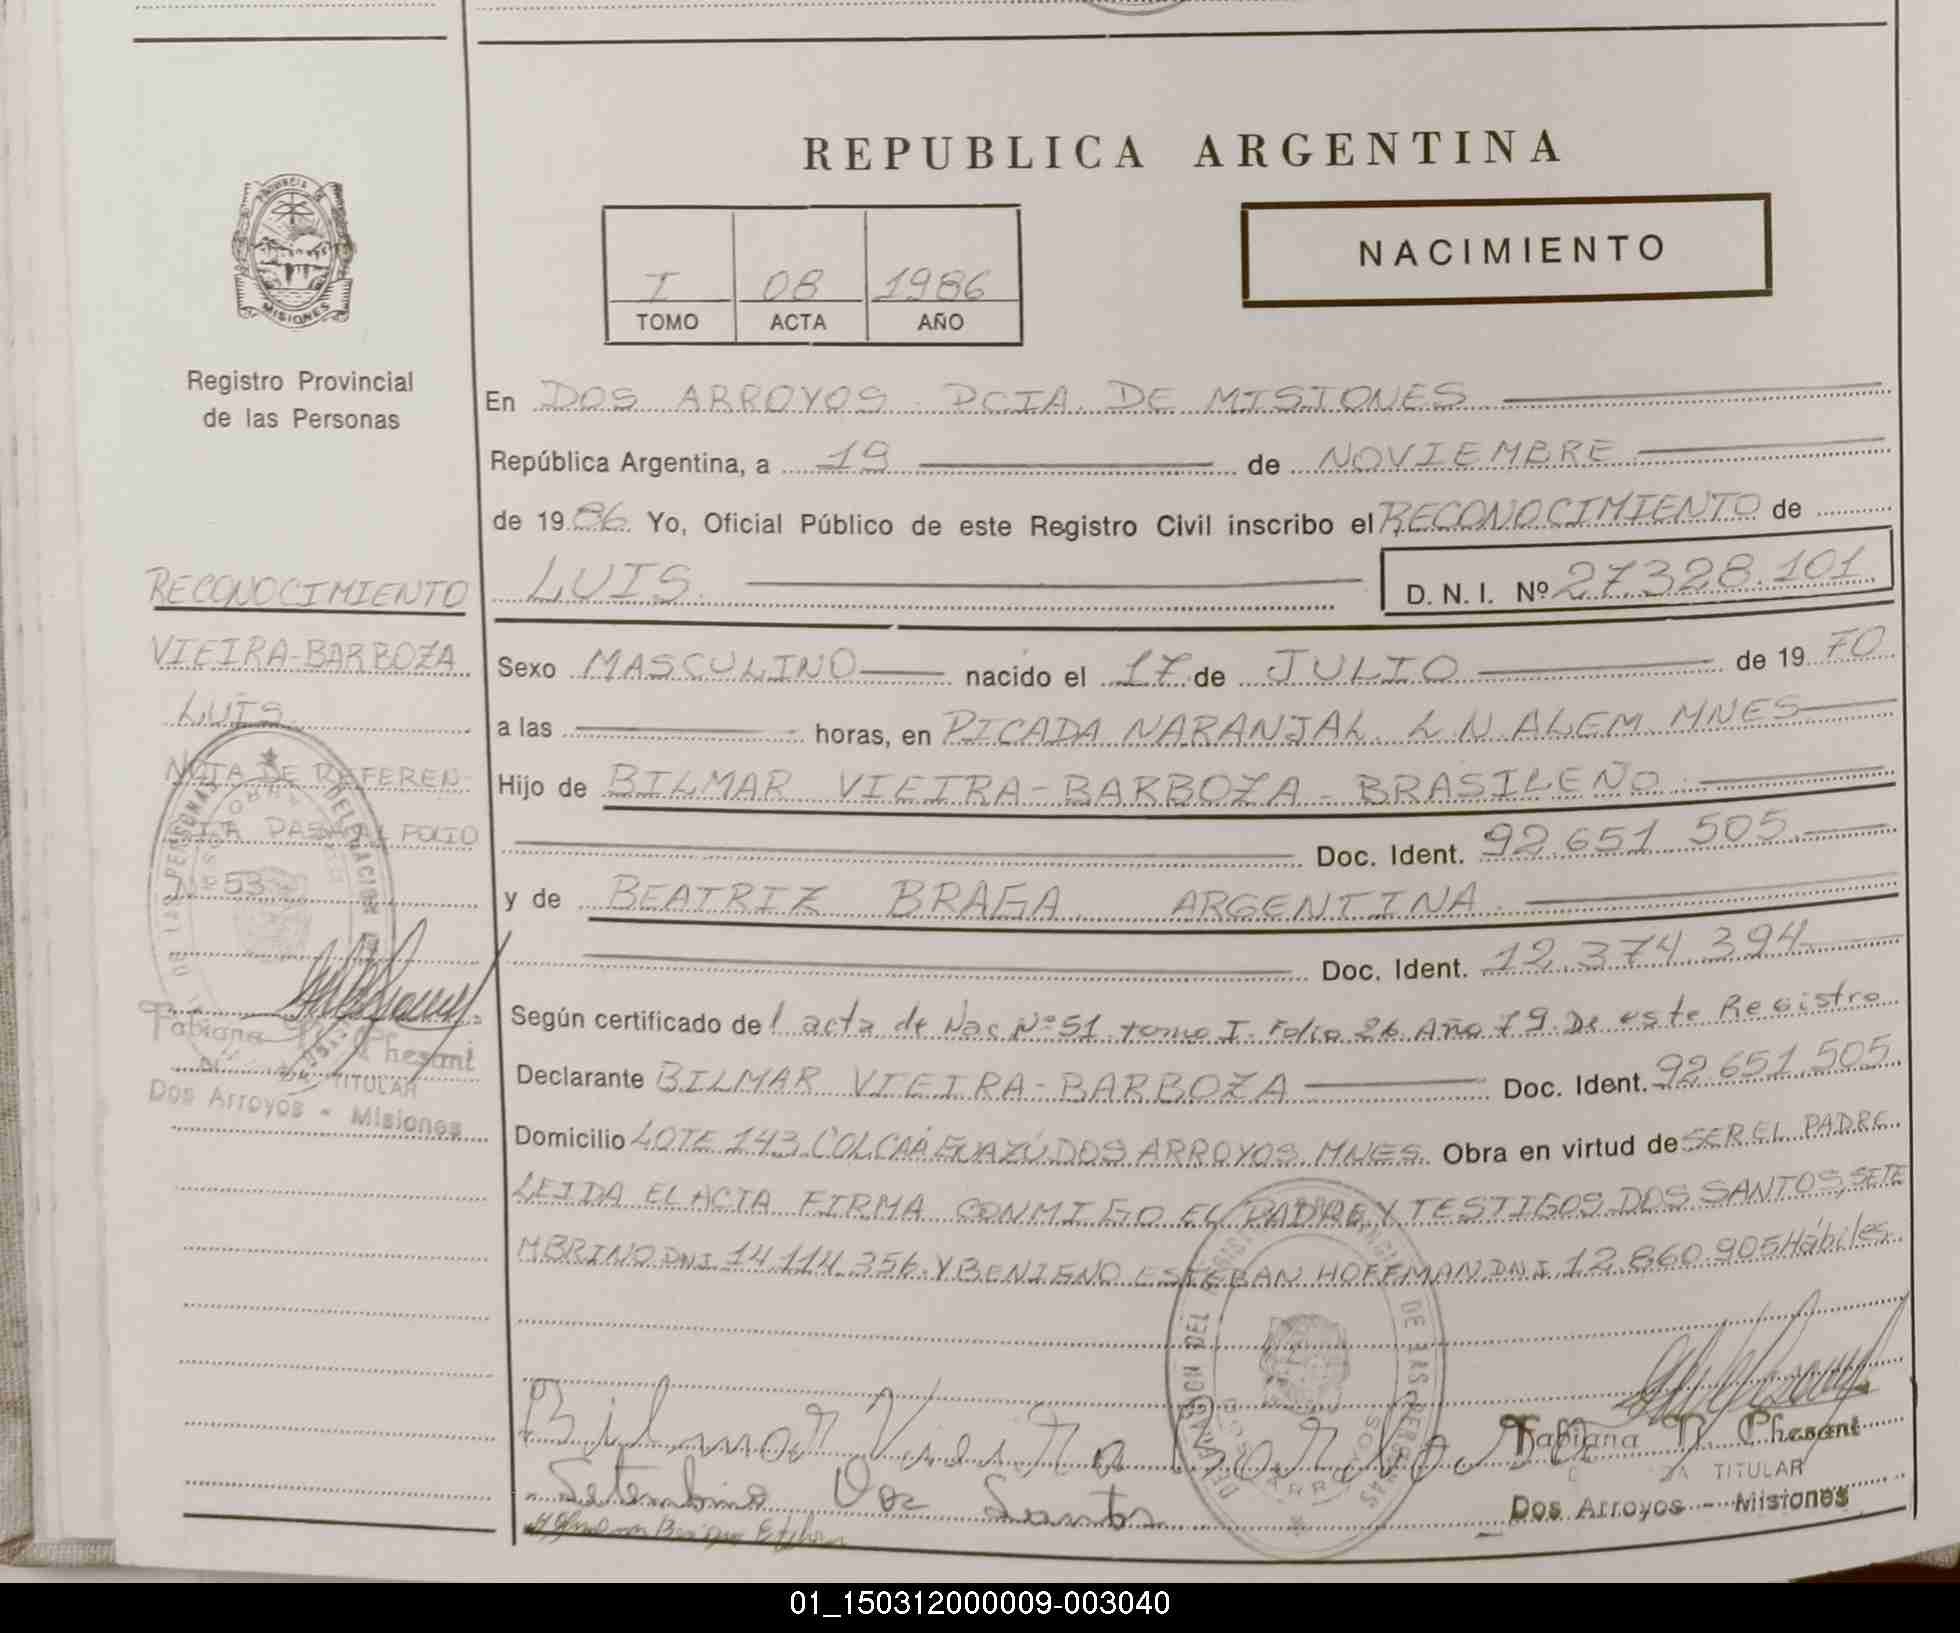 REPUBLICA ARGENTINA
NACIMIENTO
I 08 1986
TOMO ACTA AÑO
PROVINCIA DE
MISIONES
Registro Provincial
de las Personas
En DOS ARROYOS PCIA. DE MISIONES
República Argentina, a 19 de NOVIEMBRE
de 1986 Yo, Oficial Público de este Registro Civil inscribo el RECONOCIMIENTO de
LUIS D. N. I. Nº 27.328.101
Sexo MASCULINO nacido el 17 de JULIO de 19 70
a las horas, en PICADA NARANJAL. L N ALEM. MNES
Hijo de BILMAR VIEIRA-BARBOZA - BRASILEÑO
Doc. Ident. 92.651.505
y de BEATRIZ BRAGA ARGENTINA
Doc. Ident. 12.374.394
Según certificado del acta de Nac Nº 51 tomo I. Folio 26 Año 79. De este Registro
Declarante BILMAR VIEIRA-BARBOZA Doc. Ident. 92.651.505
Domicilio LOTE 143 COL CAÁ GUAZÚ DOS ARROYOS MNES. Obra en virtud de SER EL PADRE.
LEIDA EL ACTA FIRMA CONMIGO EL PADRE, Y TESTIGOS DOS SANTOS, SETE
MBRINO DNI 14.114.356. Y BENIGNO ESTEBAN HOFFMAN DNI 12.860.905 Hábiles.
RECONOCIMIENTO
VIEIRA-BARBOZA
LUIS
NOTA DE REFEREN-
CIA PASA AL FOLIO
Nº 53
Fabiana N. Phesant
TITULAR
Dos Arroyos - Misiones
Bilmar Vieira Barboza
Setembrino Dos Santos
Fabiana N. Phesant
TITULAR
Dos Arroyos - Misiones
01_150312000009-003040